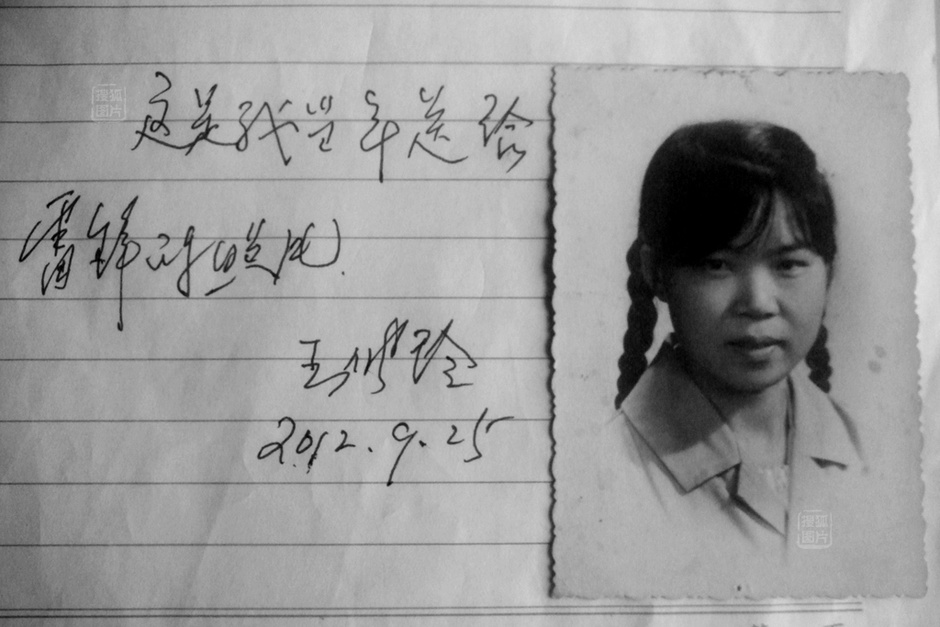 这是我当年送给
雷锋的照片.
王佩玲
2012.9.25
搜狐
图片
搜狐
图片